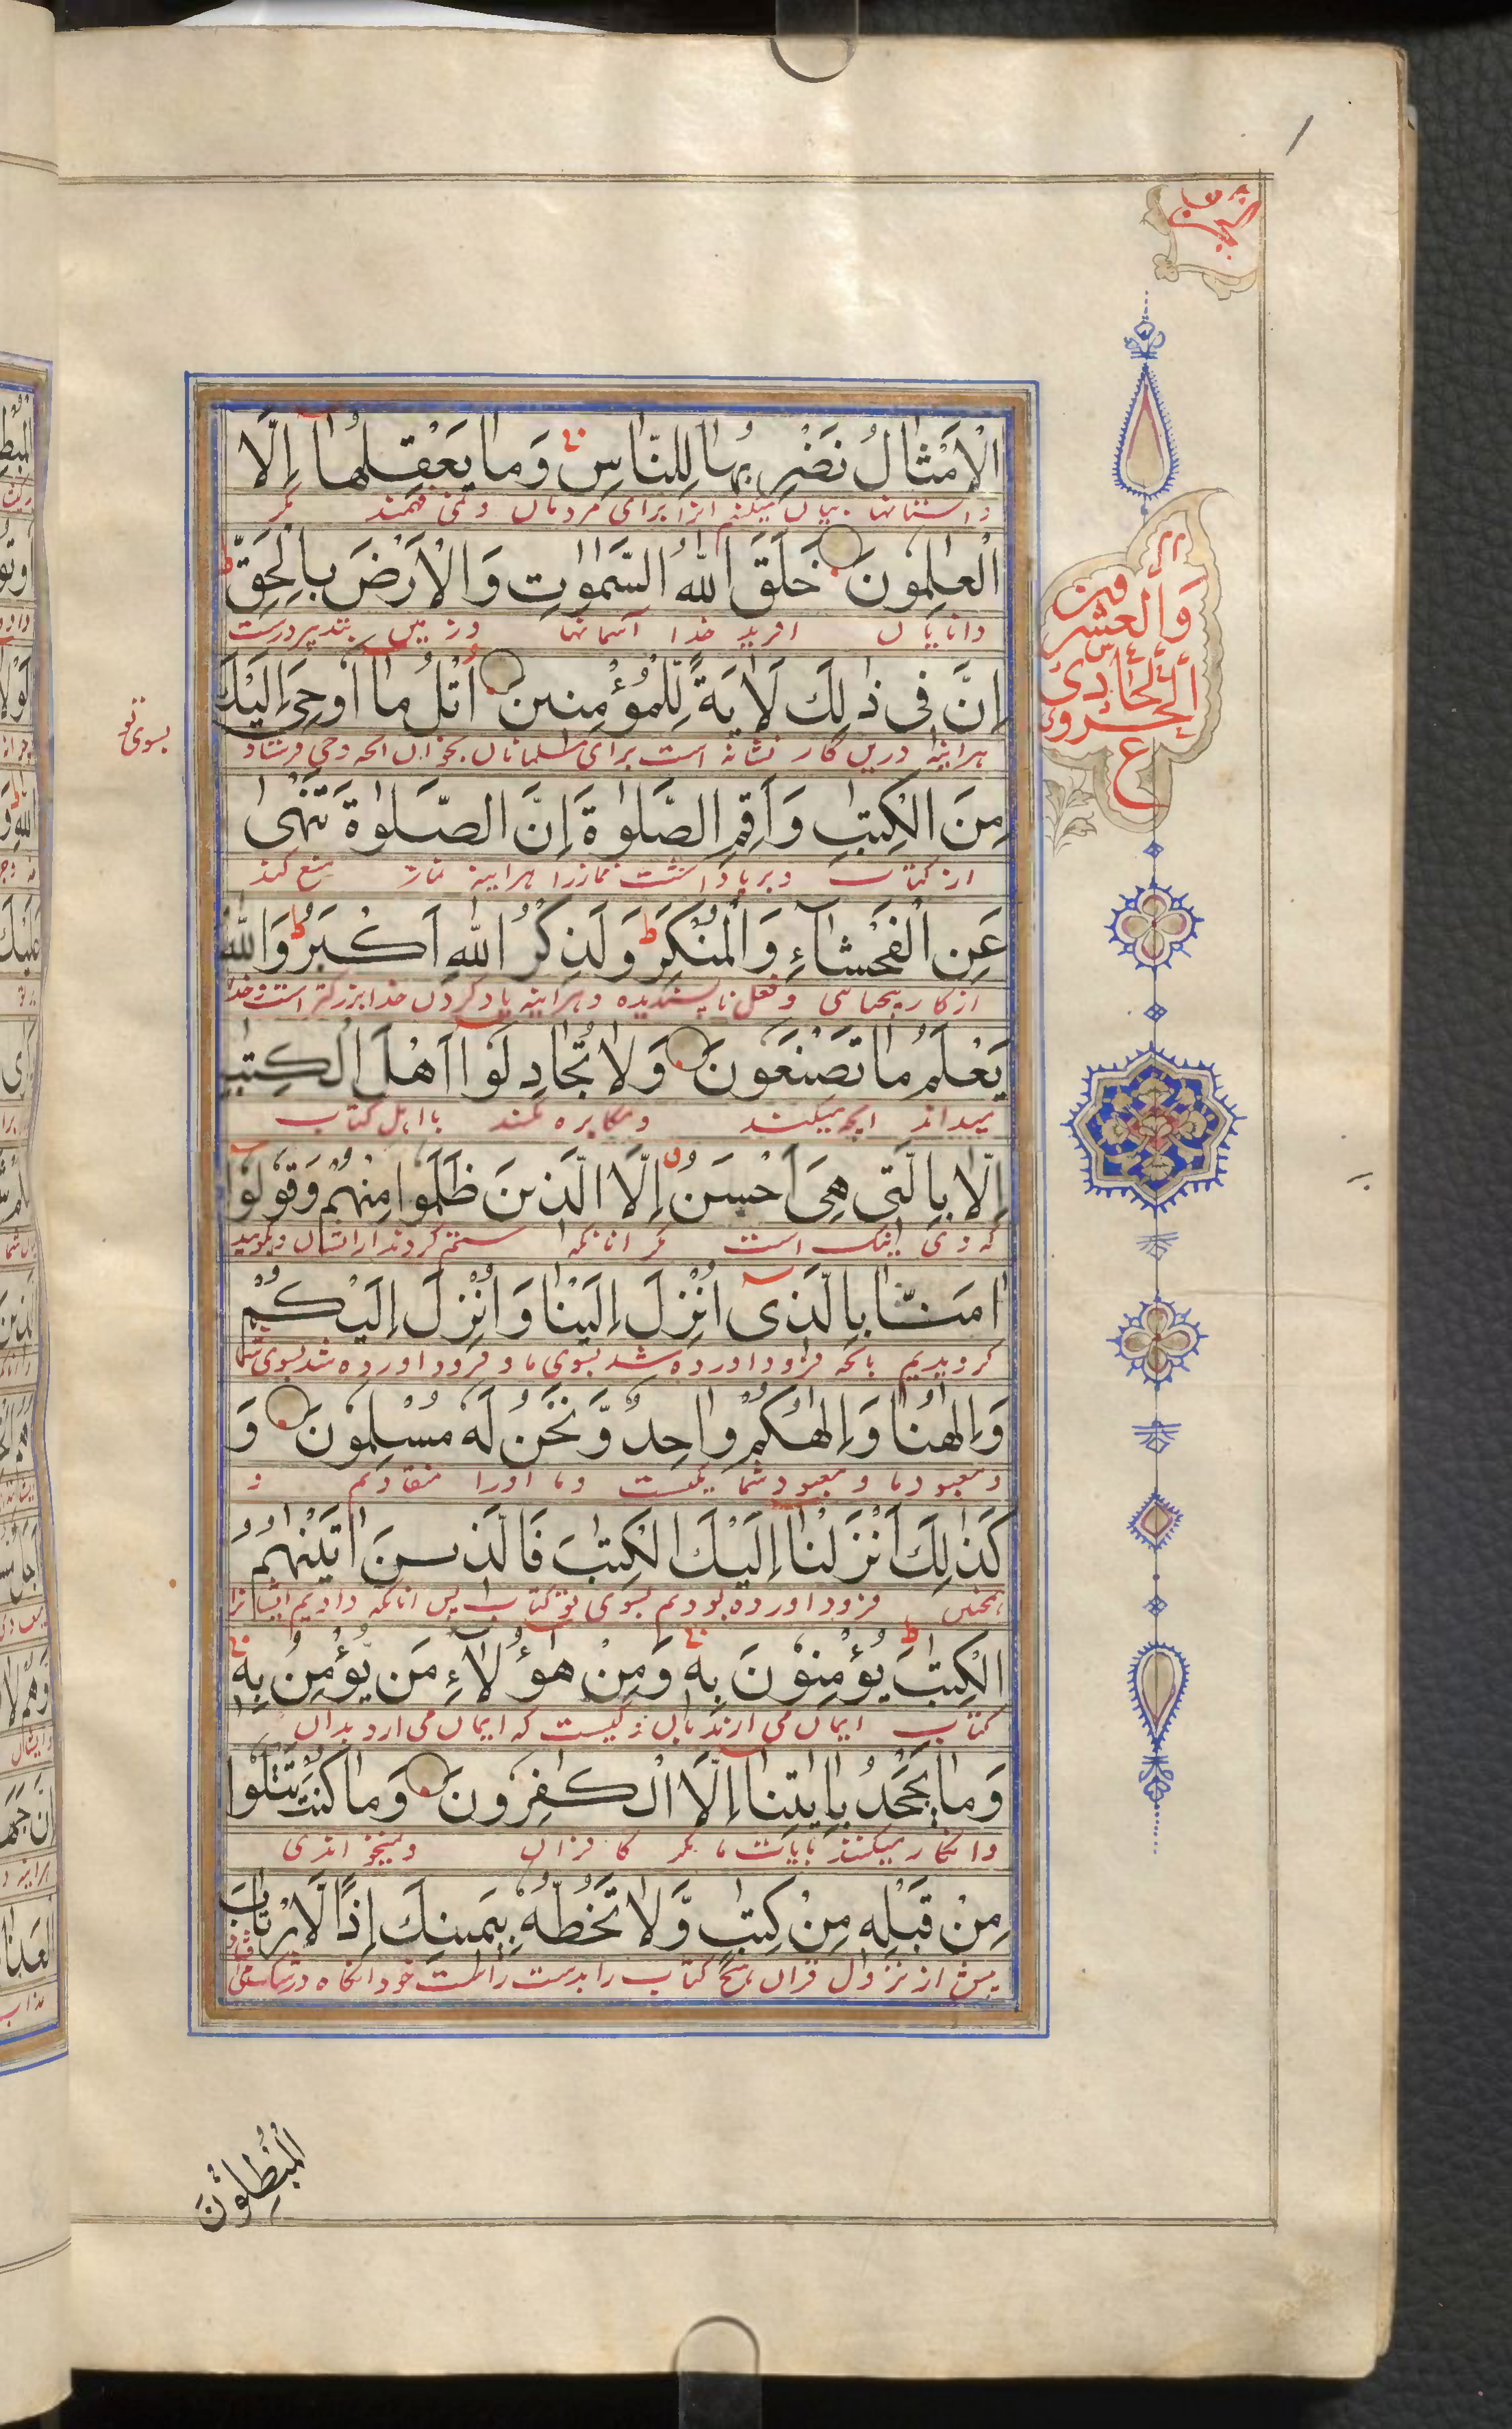 الجزء
الْاَمْثَالُ نَضْرِبُهَا لِلنَّاسِ وَمَا يَعْقِلُهَا اِلَّا
داستانها بیان میکنم انرا برای مردمان و نمی فهمند مگر
الْعٰلِمُونَ خَلَقَ اللّٰهُ السَّمٰوٰتِ وَالْاَرْضَ بِالْحَقِّ
دانایان افرید خدا آسمانها و زمین بتدبیر درست
وَالْعِشْرِينَ
اِنَّ فِى ذٰلِكَ لَاٰيَةً لِّلْمُؤْمِنِينَ اُتْلُ مَا اُوحِىَ اِلَيْكَ
اَلْحَادِى
هراینه درین کار نشانه است برای مسلمانان بخوان انچه وحی فرستاد
بسوی تو
ع
مِنَ الْكِتٰبِ وَاَقِمِ الصَّلٰوةَ اِنَّ الصَّلٰوةَ تَنْهٰى
از کتاب و برپا داشت نماز را هراینه نماز منع کند
عَنِ الْفَحْشَآءِ وَالْمُنْكَرِ ط وَلَذِكْرُ اللّٰهِ اَكْبَرُ ط وَاللّٰهُ
از کار بیحیاسی و فعل ناپسندیده و هراینه یاد کردن خدا بزرگتر است و خدا
يَعْلَمُ مَا تَصْنَعُونَ وَلَا تُجَادِلُوا اَهْلَ الْكِتٰبِ
میداند انچه میکنند و مکابره مکنند با اهل کتاب
اِلَّا بِالَّتِى هِىَ اَحْسَنُ اِلَّا الَّذِينَ ظَلَمُوا مِنْهُمْ وَقُولُوا
که وی نیک است مگر انانکه ستم کردند از ایشان و بگویید
اٰمَنَّا بِالَّذِى اُنْزِلَ اِلَيْنَا وَاُنْزِلَ اِلَيْكُمْ
گرویدیم بانچه فرود اورده شد بسوی ما و فرود اورده شد بسوی شما
وَاِلٰهُنَا وَاِلٰهُكُمْ وَاحِدٌ وَّنَحْنُ لَهُ مُسْلِمُونَ وَ
و معبود ما و معبود شما یکیست و ما اورا منقادیم و
كَذٰلِكَ اَنْزَلْنَا اِلَيْكَ الْكِتٰبَ فَالَّذِينَ اٰتَيْنٰهُمُ
همچنین فرود اورده بودیم بسوی تو کتاب پس انانکه دادیم ایشانرا
الْكِتٰبَ يُؤْمِنُونَ بِهٖ وَمِنْ هٰؤُلَاءِ مَن يُّؤْمِنُ بِهٖ
کتاب ایمان می ارند بان و کیست که ایمان می ارد بدان
وَمَا يَجْحَدُ بِاٰيٰتِنَا اِلَّا الْكٰفِرُونَ وَمَا كُنْتَ تَتْلُوا
و انکار میکنند بایات ما مگر کافران و نمیخواندی
مِنْ قَبْلِهٖ مِنْ كِتٰبٍ وَّلَا تَخُطُّهُ بِيَمِينِكَ اِذًا لَّارْتَابَ
پیش از نزول قران هیچ کتاب را بدست راست خود انگاه در شک
الْمُبْطِلُوْنَ